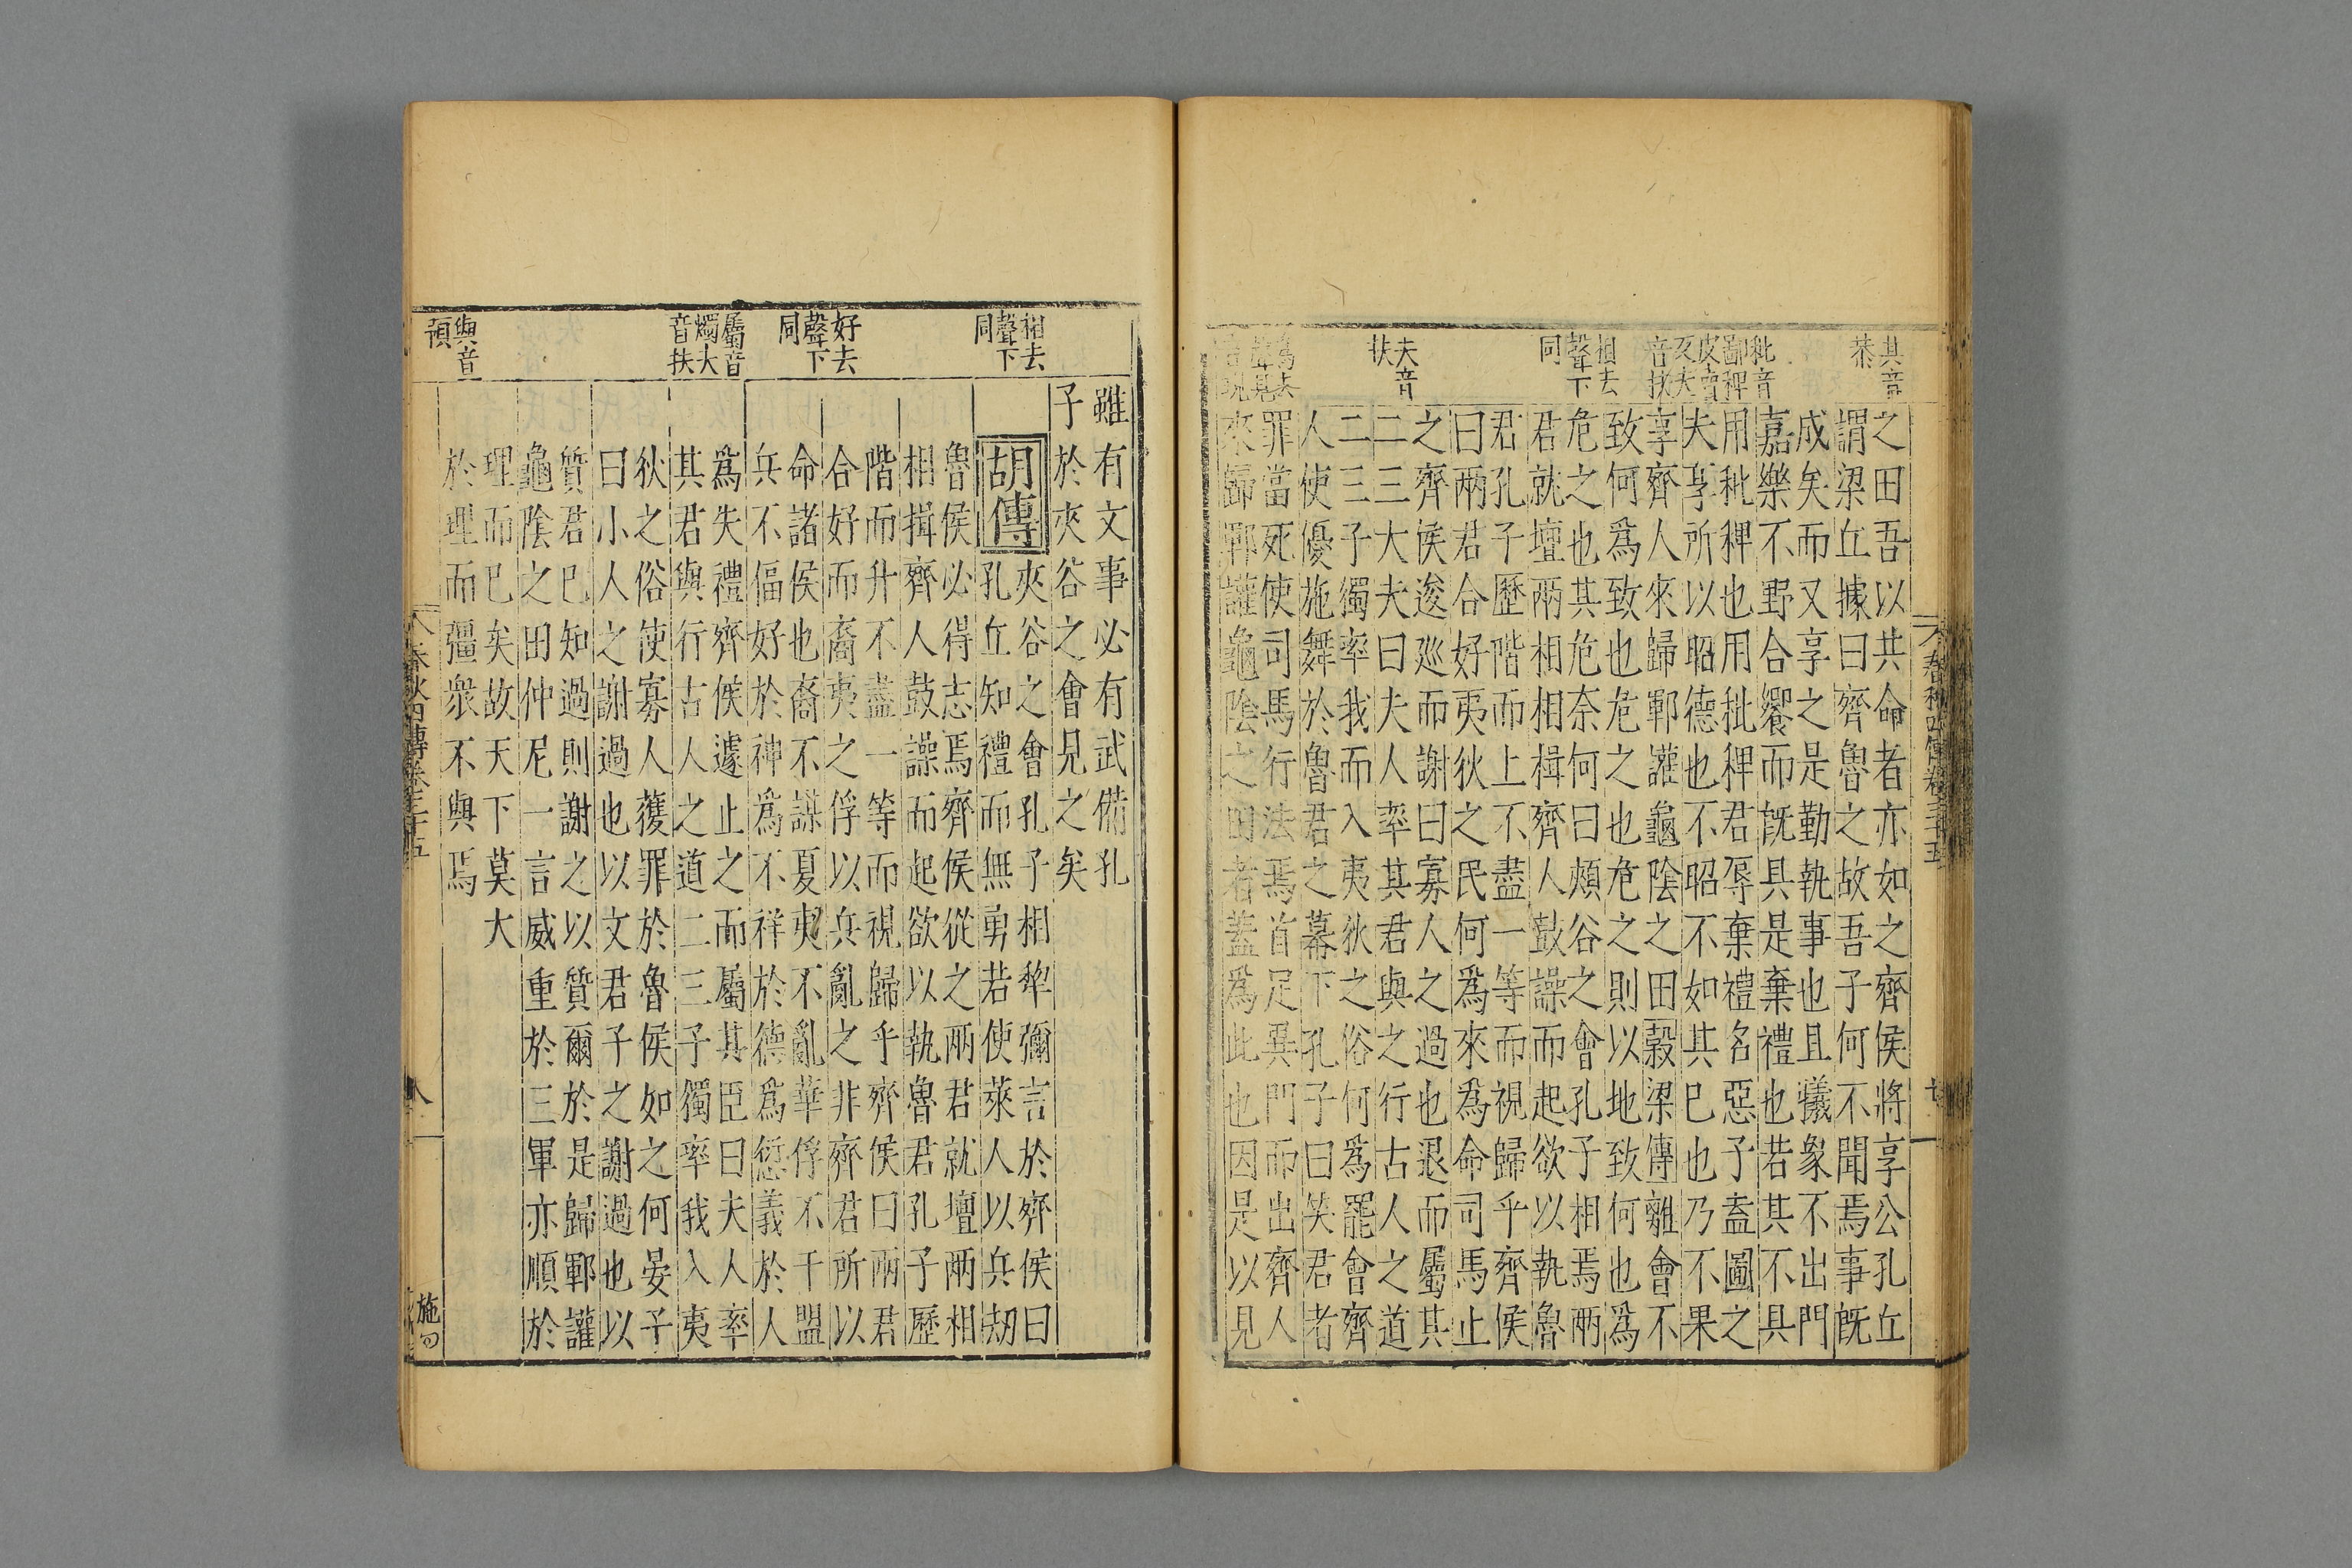 其音
恭
秕音
鄙稗
皮賣
反夫
音扶
相去
聲下
同
夫音
扶
之田吾以共命者亦如之齊侯將享公孔丘
謂梁丘據曰齊魯之故吾子何不聞焉事既
成矣而又享之是勤執事也且犧象不出門
嘉樂不野合饗而既具是棄禮也若其不具
用秕稗也用秕稗君辱棄禮名惡子盍圖之
夫享所以昭德也不昭不如其已也乃不果
享齊人來歸鄆讙龜陰之田榖梁傳離會不
致何爲致也危之也危之則以地致何也爲
危之也其危奈何曰頰谷之會孔子相焉兩
君就壇兩相相揖齊人鼓譟而起欲以執魯
君孔子歷階而上不盡一等而視歸乎齊侯
曰兩君合好夷狄之民何爲來爲命司馬止
之齊侯逡巡而謝曰寡人之過也退而屬其
二三大夫曰夫人率其君與之行古人之道
二三子獨率我而入夷狄之俗何爲罷會齊
人使優施舞於魯君之幕下孔子曰笑君者
罪當死使司馬行法焉首足異門而出齊人
來歸鄆讙龜陰之田者蓋爲此也因是以見
相去
聲下
同
好去
聲下
同
屬音
燭夫
音扶
與音
預
雖有文事必有武備孔
子於夾谷之會見之矣
胡傳
夾谷之會孔子相犂彌言於齊侯曰
孔丘知禮而無勇若使萊人以兵刼
魯侯必得志焉齊侯從之兩君就壇兩相
相揖齊人鼓譟而起欲以執魯君孔子歷
階而升不盡一等而視歸乎齊侯曰兩君
合好而裔夷之俘以兵亂之非齊君所以
命諸侯也裔不謀夏夷不亂華俘不干盟
兵不偪好於神爲不祥於德爲愆義於人
爲失禮齊侯遽止之而屬其臣曰夫人率
其君與行古人之道二三子獨率我入夷
狄之俗使寡人獲罪於魯侯如之何晏子
曰小人之謝過也以文君子之謝過也以
質君已知過則謝之以質爾於是歸鄆讙
龜陰之田仲尼一言威重於三軍亦順於
理而已矣故天下莫大
於理而彊衆不與焉
春秋四傳卷三十五
八